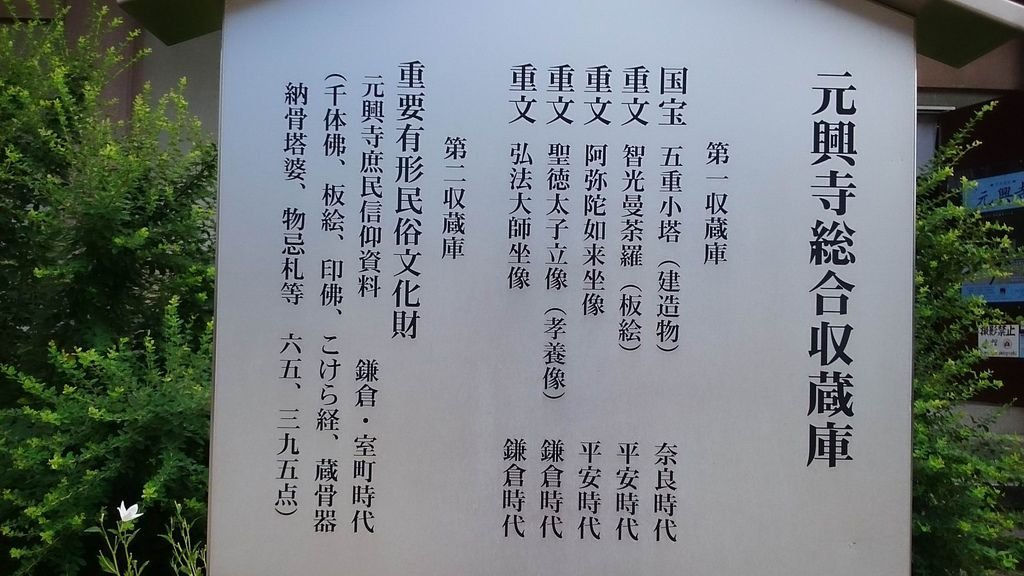 元興寺総合収蔵庫
第一収蔵庫
国宝 五重小塔（建造物） 奈良時代
重文 智光曼荼羅（板絵） 平安時代
重文 阿弥陀如来坐像 平安時代
重文 聖徳太子立像（孝養像） 鎌倉時代
重文 弘法大師坐像 鎌倉時代
第二収蔵庫
重要有形民俗文化財
元興寺庶民信仰資料 鎌倉・室町時代
（千体佛、板絵、印佛、こけら経、蔵骨器
納骨塔婆、物忌札等 六五、三九五点）
元興
撮影禁止